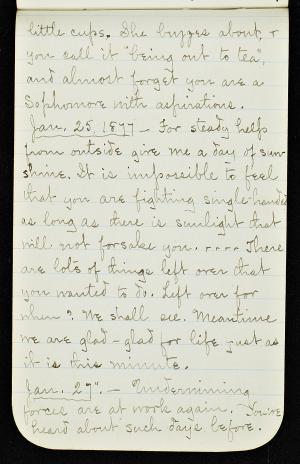 little cups. She buzzes about, &
you call it "being out to tea",
and almost forget you are a
Sophomore with aspirations.
Jan. 25, 1897 - For steady help
from outside give me a day of sun-
shine. It is impossible to feel
that you are fighting single-handed
as long as there is sunlight that
will not forsake you. .... There
are lots of things left over that
you wanted to do. Left over for
when? We shall see. Meantime
we are glad - glad for life just as
it is this minute.
Jan. 27" - Undermining
forces are at work again. You've
heard about such days before.